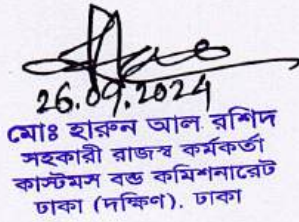 26.09.2024
মোঃ হারুন আল রশিদ
সহকারী রাজস্ব কর্মকর্তা
কাস্টমস বন্ড কমিশনারেট
ঢাকা (দক্ষিণ), ঢাকা